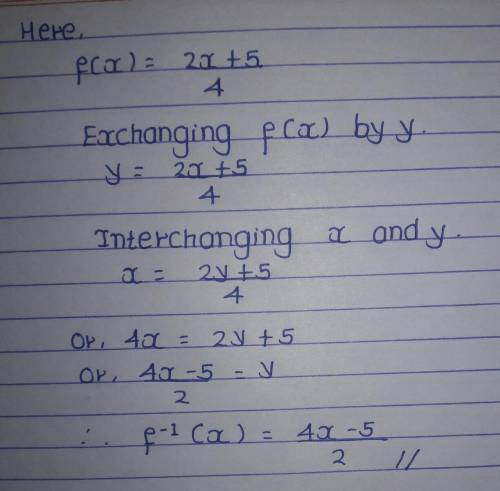 Here,
f(x) = 2x+5
4
Exchanging f(x) by y.
y = 2x+5
4
Interchanging x and y.
x = 2y+5
4
Or, 4x = 2y+5
Or, 4x-5 = y
2
∴ f-1(x) = 4x-5
2 //